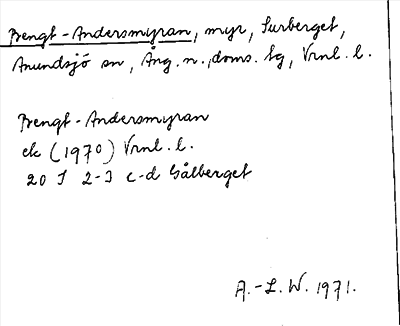 Bengt-Andersmyran, myr, Surberget,
Anundsjö sn, Ång. n. doms. tg, Vrnl. l.
Bengt-Andersmyran
ek (1970) Vrnl. l.
20 I 2-3 c-d Gålberget
A.-L. W. 1971.